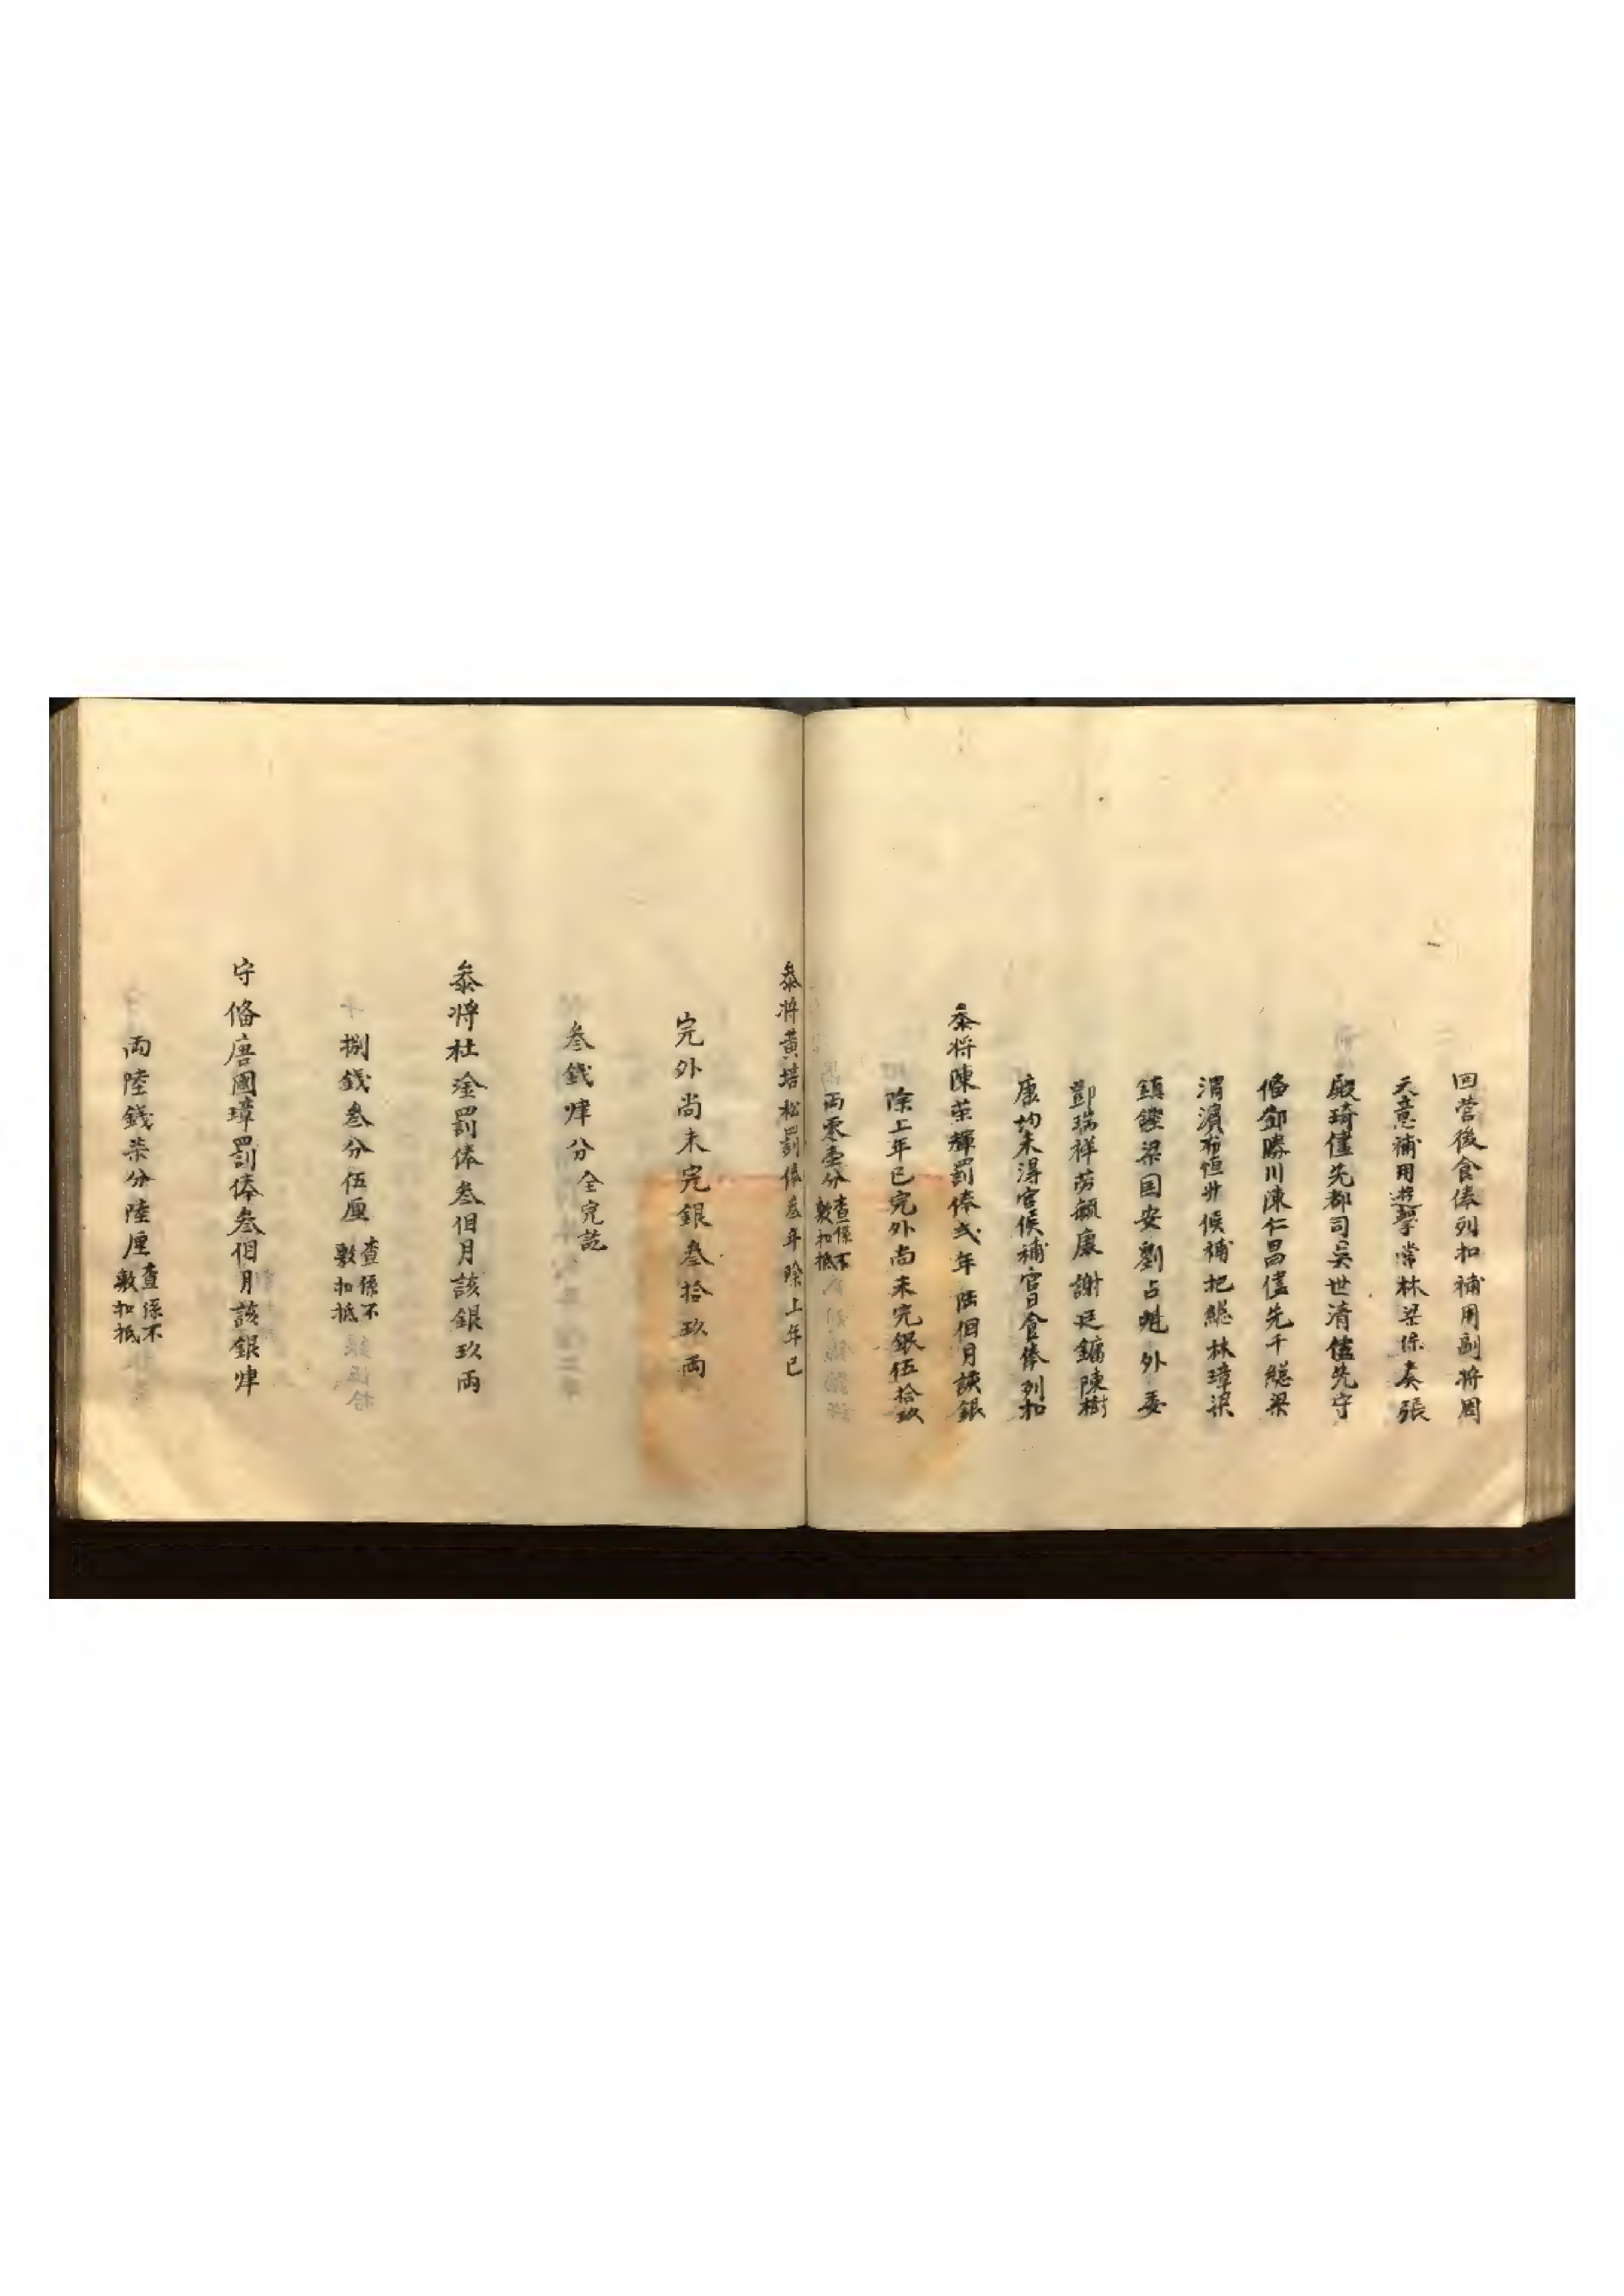 回营後食俸列扣補用副将周
天意補用遊擊常林梁保奏張
殿琦儘先都司吳世清儘先守
俻鄧勝川陳仁昌儘先千總梁
渭濱布恒升候補把總林璋梁
鎮鏗梁国安劉占魁外委
鄧瑞祥勞毓廉謝廷鏞陳樹
康均未淂官候補官日食俸列扣
叅将陳荣輝罰俸弍年陆個月該銀
除上年已完外尚未完銀伍拾玖
両零壹分查係不敷扣抵
叅将黃培松罰俸叁年除上年已
完外尚未完銀叁拾玖両
叁錢肆分全完訖
叅将杜淦罰俸叁個月該銀玖両
捌錢叁分伍厘查係不敷扣抵
守俻唐國璋罰俸叁個月該銀肆
両陸錢柒分陸厘查係不敷扣抵